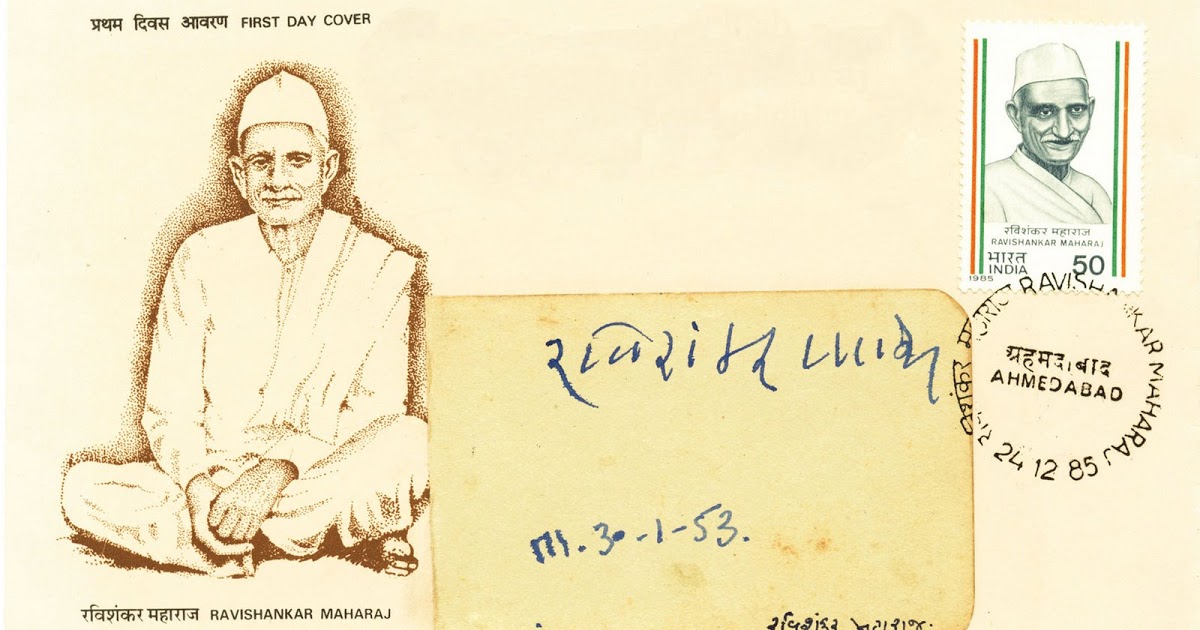 प्रथम दिवस आवरण FIRST DAY COVER
रविशंकर महाराज
RAVISHANKAR MAHARAJ
भारत
INDIA 50
1985
रविशंकर महाराज RAVISHANKAR MAHARAJ
अहमदाबाद
AHMEDABAD
24 12 85
રવિશંકર
30-1-53.
રવિશંકર મહારાજ.
रविशंकर महाराज RAVISHANKAR MAHARAJ